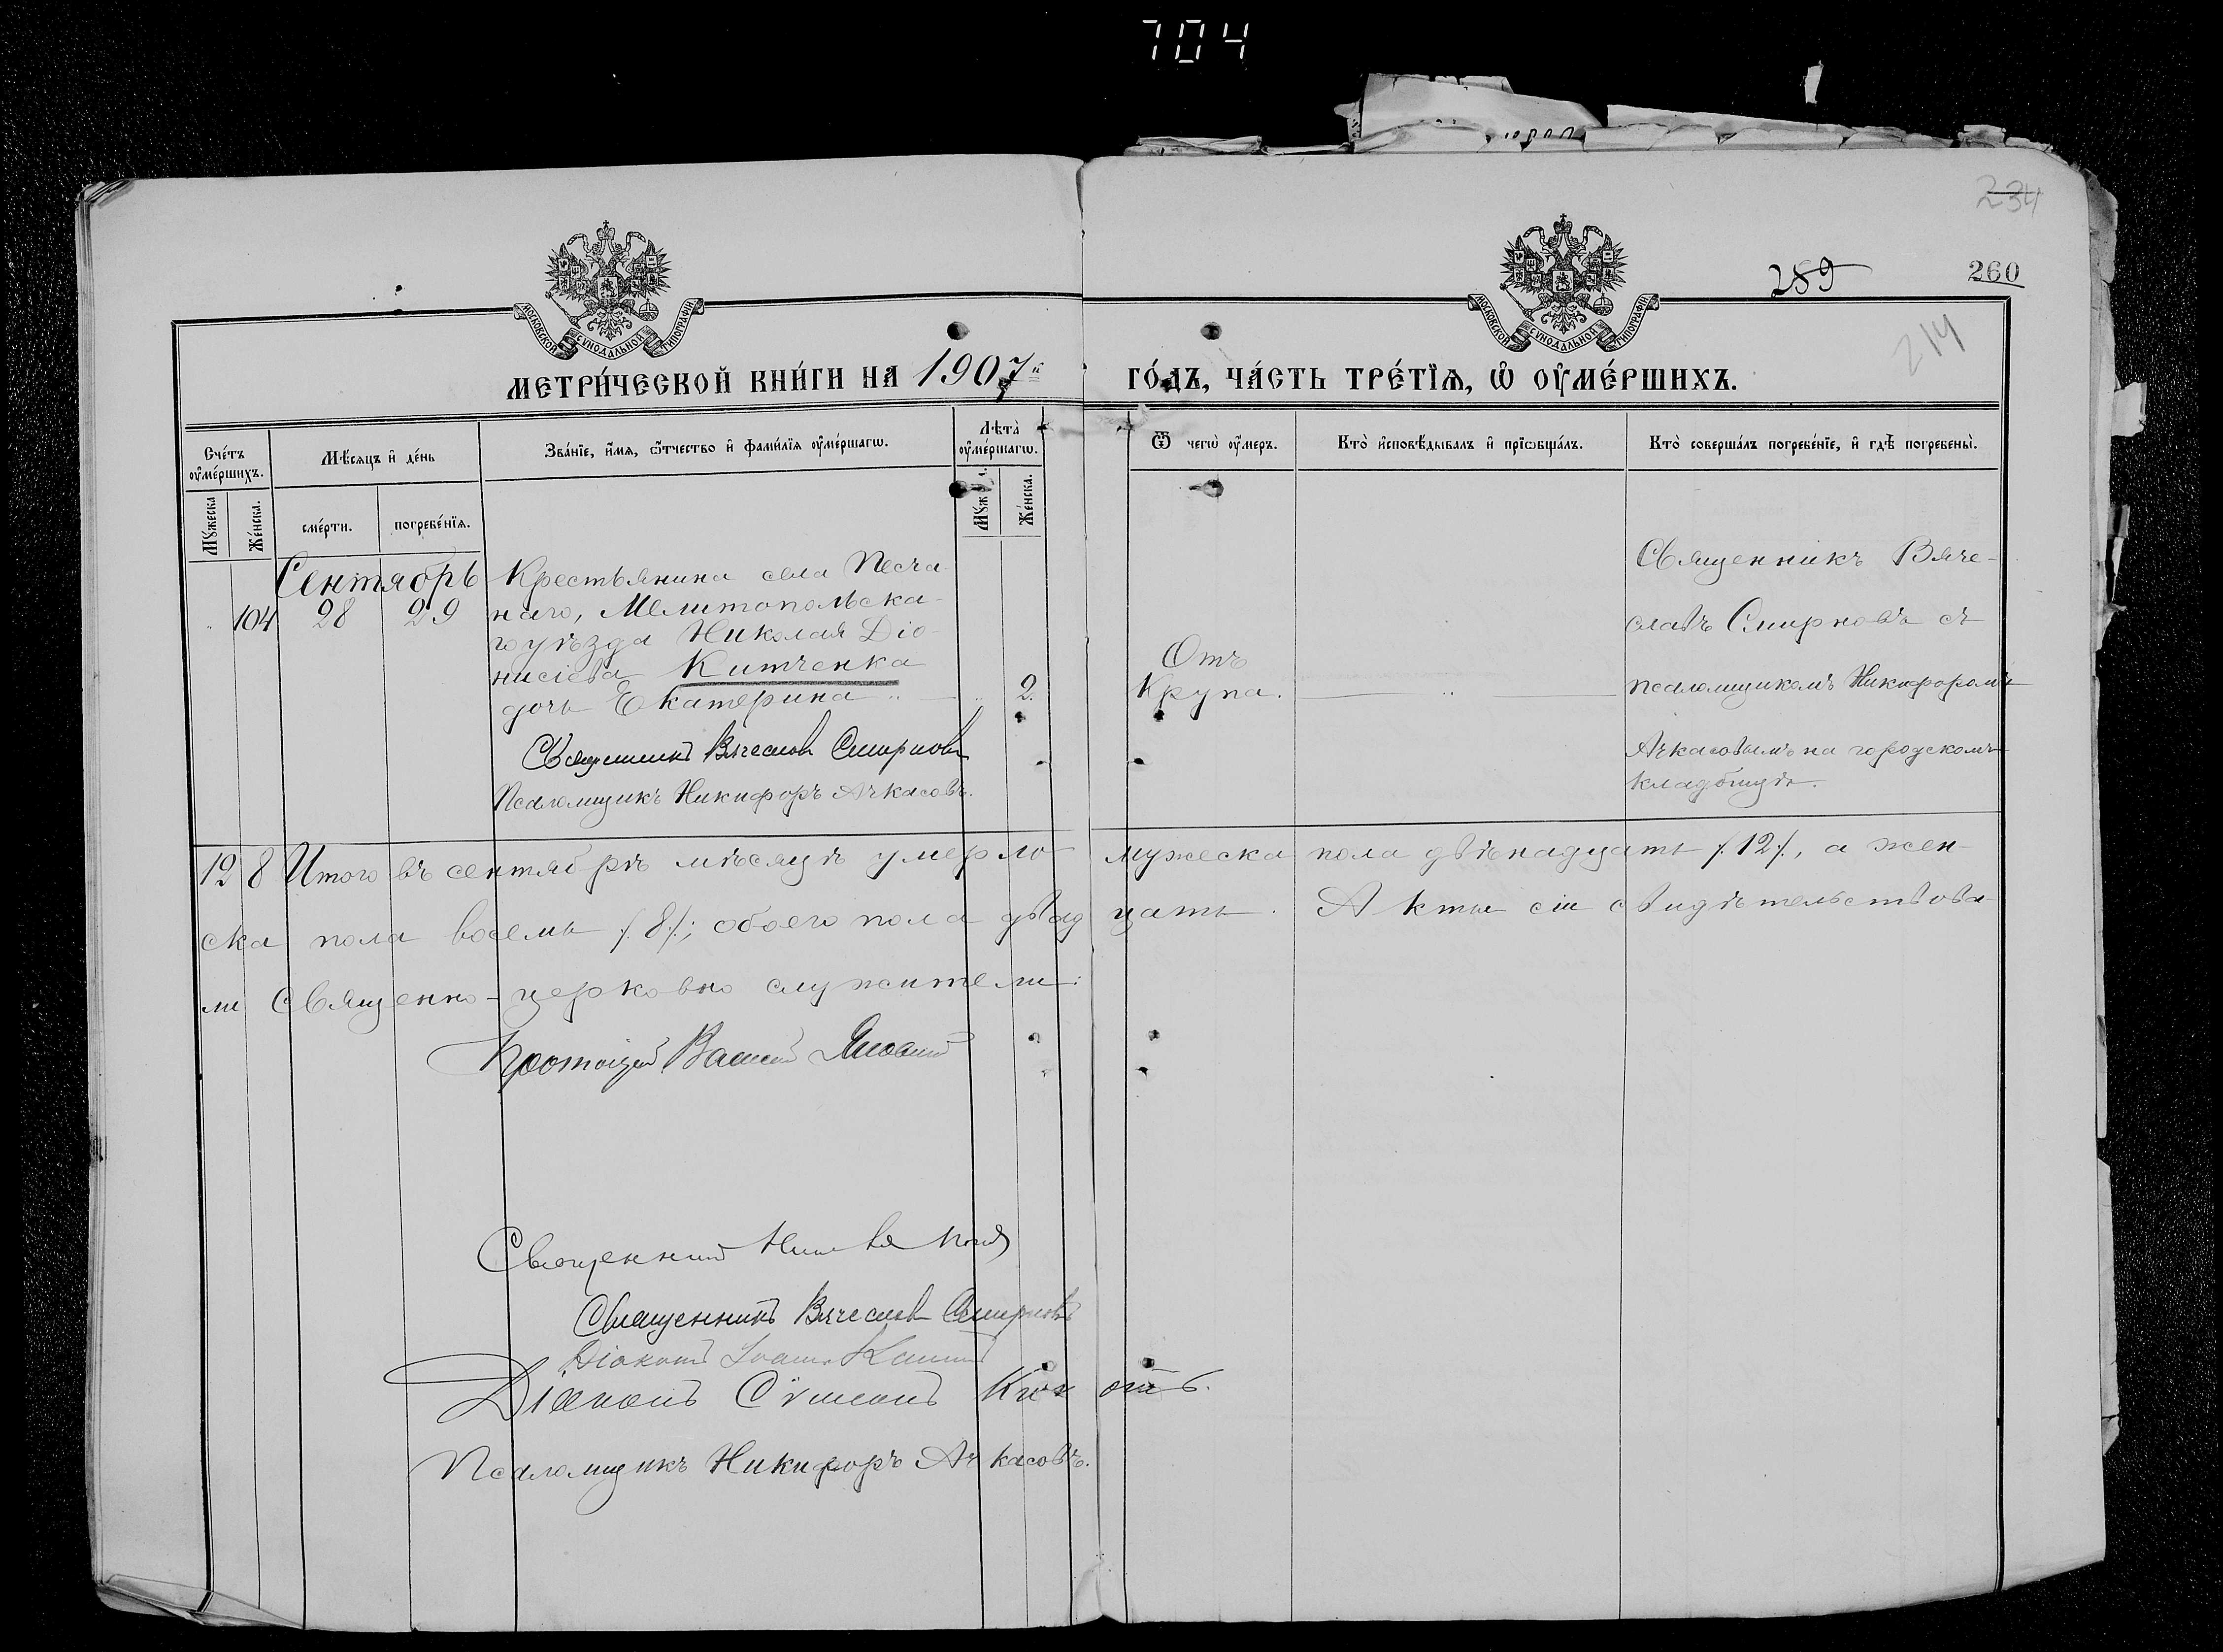 704
234
289
260
214
МОСКОВСКОЙ СУНОДАЛЬНОЙ ТИПОГРАФІИ
МОСКОВСКОЙ СУНОДАЛЬНОЙ ТИПОГРАФІИ
МЕТРИ́ЧЕСКОЙ КНИ́ГИ НА 1907й ГО́ДЪ, ЧА́СТЬ ТРЕ́ТІѦ, Ѡ҆ ОУ҆МЕ́РШИХЪ.
Сче́тъ оу҆ме́ршихъ.
Мѣ́сяцъ и҆ де́нь
Зва́нїе, и҆́мя, ѻ҆́тчество и҆ фами́лїя оу҆ме́ршагѡ.
Лѣта̀ оу҆ме́ршагѡ.
Ѿ чегѡ̀ оу҆́меръ.
Кто̀ и҆сповѣ́дывалъ и҆ прїѡбща́лъ.
Кто̀ соверша́лъ погребе́нїе, и҆ гдѣ̀ погребены̀.
Мꙋ́жеска
Же́нска.
сме́рти.
погребе́нїя.
Мꙋ́ж
Же́нска.
Сентябрь
104 28 29
Крестьянина села Песча-
наго, Мелитопольска-
го уѣзда Николая Діо-
нисіева Китченка
дочь Екатерина " — " 2.
Священникъ Вячеславъ Смирновъ
Псаломщикъ Никифоръ Ачкасовъ.
Отъ
Крупа.
— " —
Священникъ Вяче-
славъ Смирновъ съ
псаломщикомъ Никифоромъ
Ачкасовымъ на городскомъ
кладбищѣ.
12 8 Итого въ сентябрѣ мѣсяцѣ умерло мужеска пола двѣнадцать /.12/., а жен-
ска пола восемь /.8/.; обоего пола двадцать. Акты сіи свидѣтельствова-
ли Священно-церковно служители:
Протоіерей Василій
Священникъ
Священникъ Вячеславъ Смирновъ
Діаконъ Іоаннъ
Діаконъ Сѵмеонъ
Псаломщикъ Никифоръ Ачкасовъ.